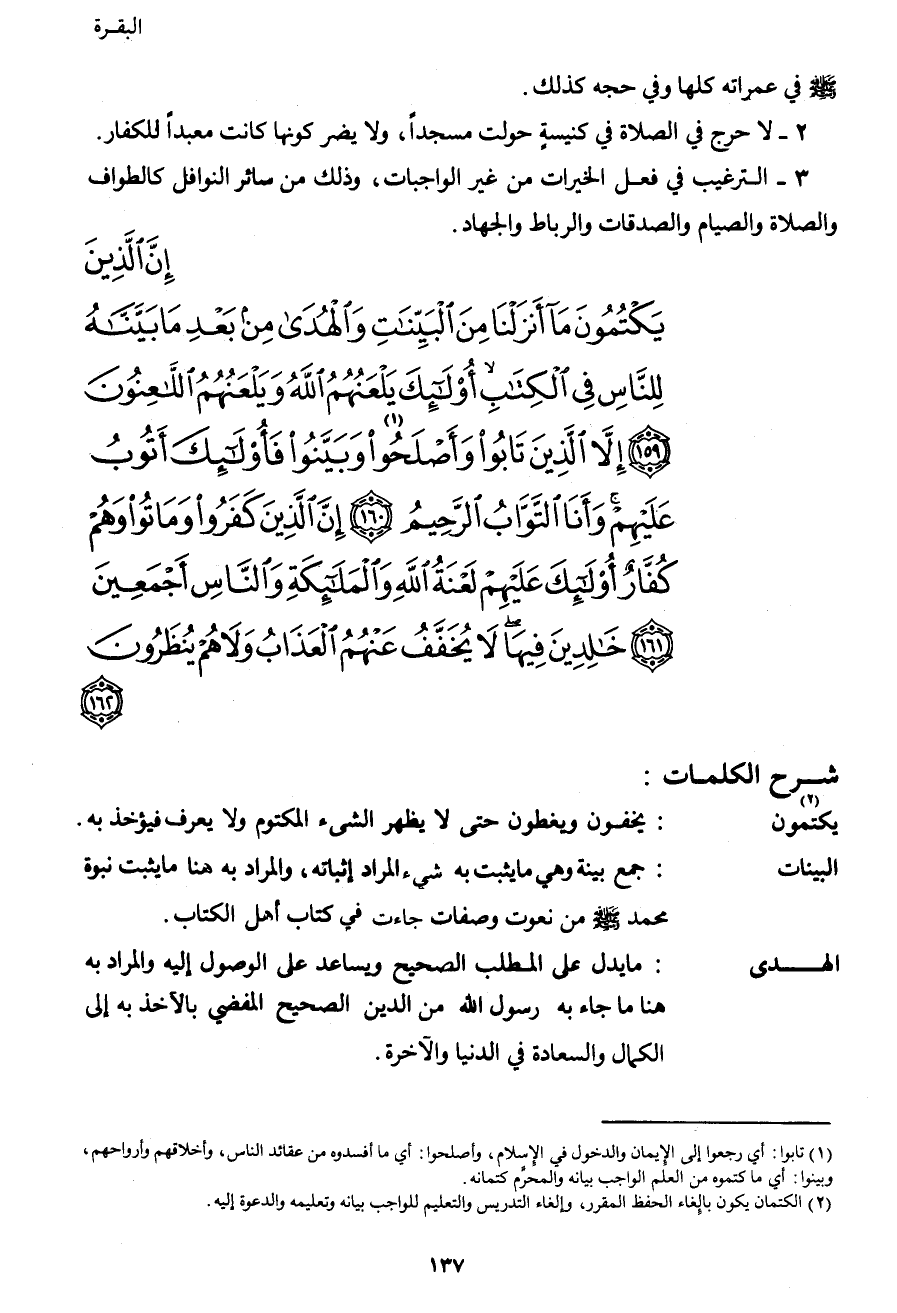 البقـرة
ﷺ في عمراته كلها وفي حجه كذلك .
٢ - لا حرج في الصلاة في كنيسةٍ حولت مسجداً، ولا يضر كونها كانت معبداً للكفار.
٣ - الـترغيب في فعـل الخيرات من غير الواجبات، وذلك من سائر النوافل كالطواف
والصلاة والصيام والصدقات والرباط والجهاد.
إِنَّ ٱلَّذِينَ
يَكْتُمُونَ مَآ أَنزَلْنَا مِنَ ٱلْبَيِّنَٰتِ وَٱلْهُدَىٰ مِنۢ بَعْدِ مَا بَيَّنَّٰهُ
لِلنَّاسِ فِى ٱلْكِتَٰبِ ۙ أُو۟لَٰٓئِكَ يَلْعَنُهُمُ ٱللَّهُ وَيَلْعَنُهُمُ ٱللَّٰعِنُونَ
(١)
١٥٩ إِلَّا ٱلَّذِينَ تَابُوا۟ وَأَصْلَحُوا۟ وَبَيَّنُوا۟ فَأُو۟لَٰٓئِكَ أَتُوبُ
عَلَيْهِمْ ۚ وَأَنَا ٱلتَّوَّابُ ٱلرَّحِيمُ ١٦٠ إِنَّ ٱلَّذِينَ كَفَرُوا۟ وَمَاتُوا۟ وَهُمْ
كُفَّارٌ أُو۟لَٰٓئِكَ عَلَيْهِمْ لَعْنَةُ ٱللَّهِ وَٱلْمَلَٰٓئِكَةِ وَٱلنَّاسِ أَجْمَعِينَ
١٦١ خَٰلِدِينَ فِيهَا ۖ لَا يُخَفَّفُ عَنْهُمُ ٱلْعَذَابُ وَلَا هُمْ يُنظَرُونَ
١٦٢
شـــرح الكلمـات :
يكتمون(٢) : يخفـون ويغطون حتى لا يظهر الشىء المكتوم ولا يعرف فيؤخذ به.
البينات : جمع بينة وهي مايثبت به شيء المراد إثباته، والمراد به هنا مايثبت نبوة
محمد ﷺ من نعوت وصفات جاءت في كتاب أهل الكتاب.
الهـــــدى : مايدل على المـطلب الصحيح ويساعد على الوصول إليه والمراد به
هنا ما جاء به رسول الله من الدين الصحيح المفضي بالآخذ به إلى
الكمال والسعادة في الدنيا والآخرة.
(١) تابوا: أي رجعوا إلى الإيمان والدخول في الإسلام، وأصلحوا: أي ما أفسدوه من عقائد الناس، وأخلاقهم وأرواحهم،
وبينوا: أي ما كتموه من العلم الواجب بيانه والمحرّم كتمانه.
(٢) الكتمان يكون بإلغاء الحفظ المقرر، وإلغاء التدريس والتعليم للواجب بيانه وتعليمه والدعوة إليه.
١٣٧